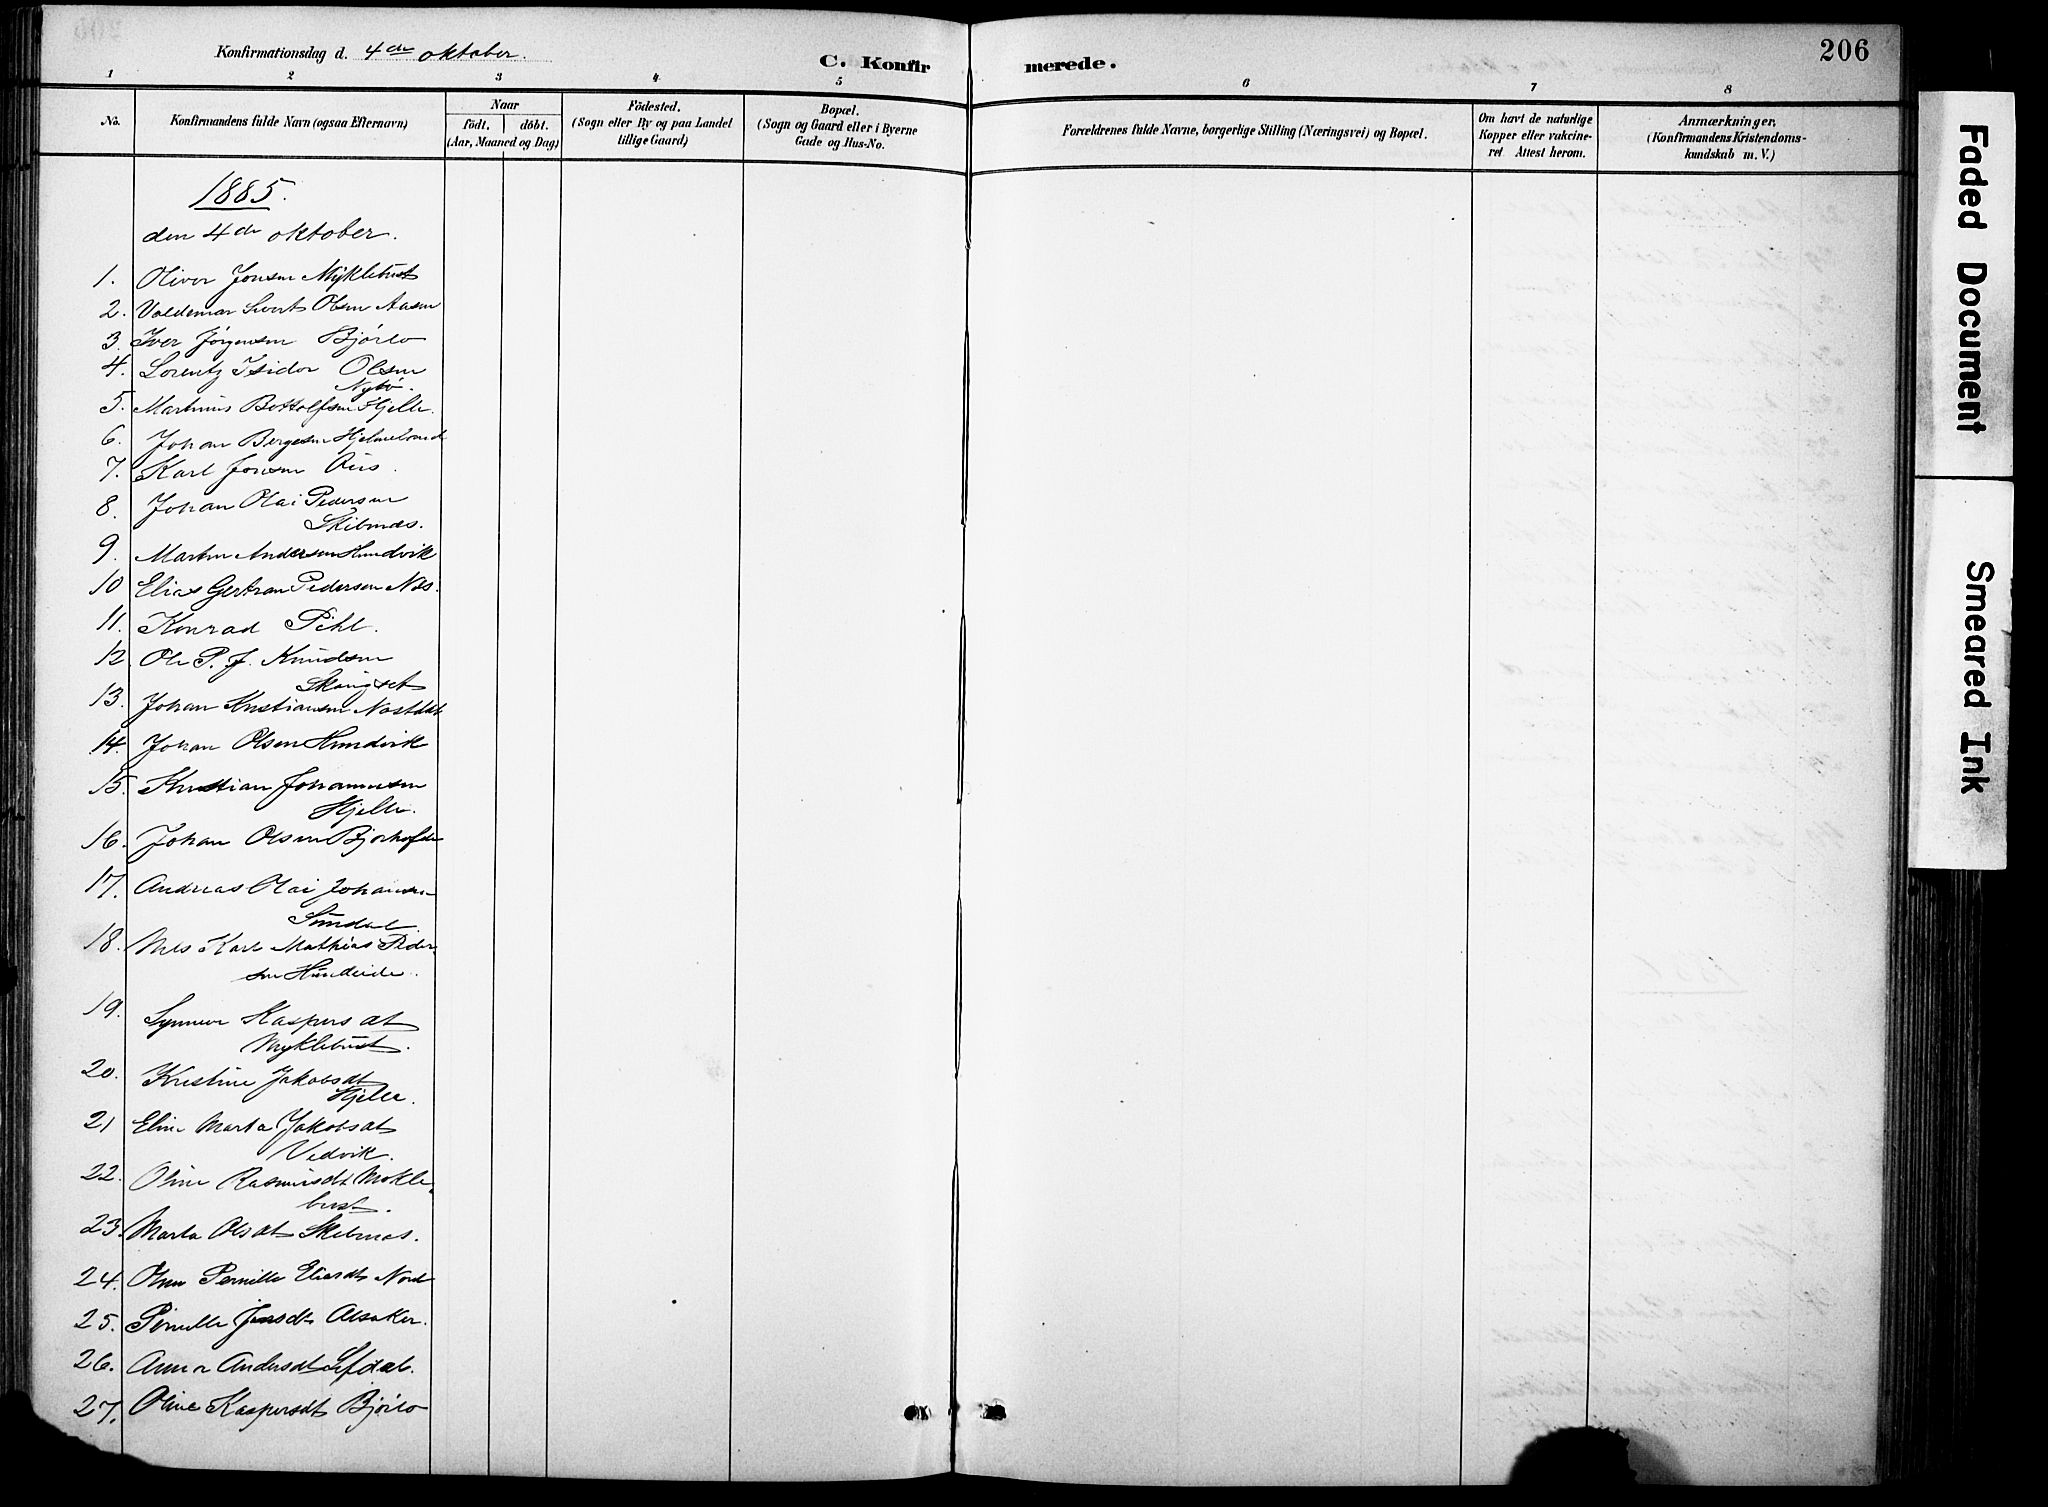 Konfirmationsdag d. 4de oktober.
C. Konfirmerede.
206
1 2 3 4 5 6 7 8
No.
Konfirmandens fulde Navn (ogsaa Efternavn)
Naar
födt. döbt.
(Aar, Maaned og Dag)
Födested.
(Sogn eller By og paa Landet
tillige Gaard)
Bopæl.
(Sogn og Gaard eller i Byerne
Gade og Hus-No.
Forældrenes fulde Navne, borgerlige Stilling (Næringsvei) og Bopæl.
Om havt de naturlige
Kopper eller vakcine-
ret Attest herom.
Anmærkninger.
(Konfirmandens Kristendoms-
kundskab m. V.)
1885.
den 4de oktober.
1. Oliver Jonsen Myklebust
2. Valdemar Sivert Olsen Aasen
3. Iver Jørgensen Bjørlo
4. Lorentz Isidor Olsen
Nybø.
5. Martinus Bottolfsen Hjelle.
6. Johan Bergesen Hjelmeland
7. Karl Jonsen Øus.
8. Johan Olai Pedersen
Skibenes.
9. Martin Andersen Hundvik
10 Elias Gertran Pedersen Nos.
11. Konrad Pihl.
12. Ole P. J. Knudsen
Skaugset
13. Johan Kristiansen Nastdal
14. Johan Olsen Hundvik
15. Kristian Johannesen
Hjelle.
16. Johan Olsen Bjørhofde
17. Andreas Olai Johansen
Sundal
18. Nils Karl Mathias Peder-
sen Hundeide.
19. Synneve Kaspersdt
Myklebust.
20. Kristine Jakobsdt
Hjelle.
21 Eline Marta Jakobsdt
Vedvik.
22. Oline Rasmusdt Mykle-
bust.
23. Marta Olsdt Skibenes.
24. Oline Pernille Eliasdt Nord
25. Pernille Jensdt Alsaker.
26. Anna Andersdt Lefdal.
27. Oline Kaspersdt Bjørlo
Faded Document
Smeared Ink